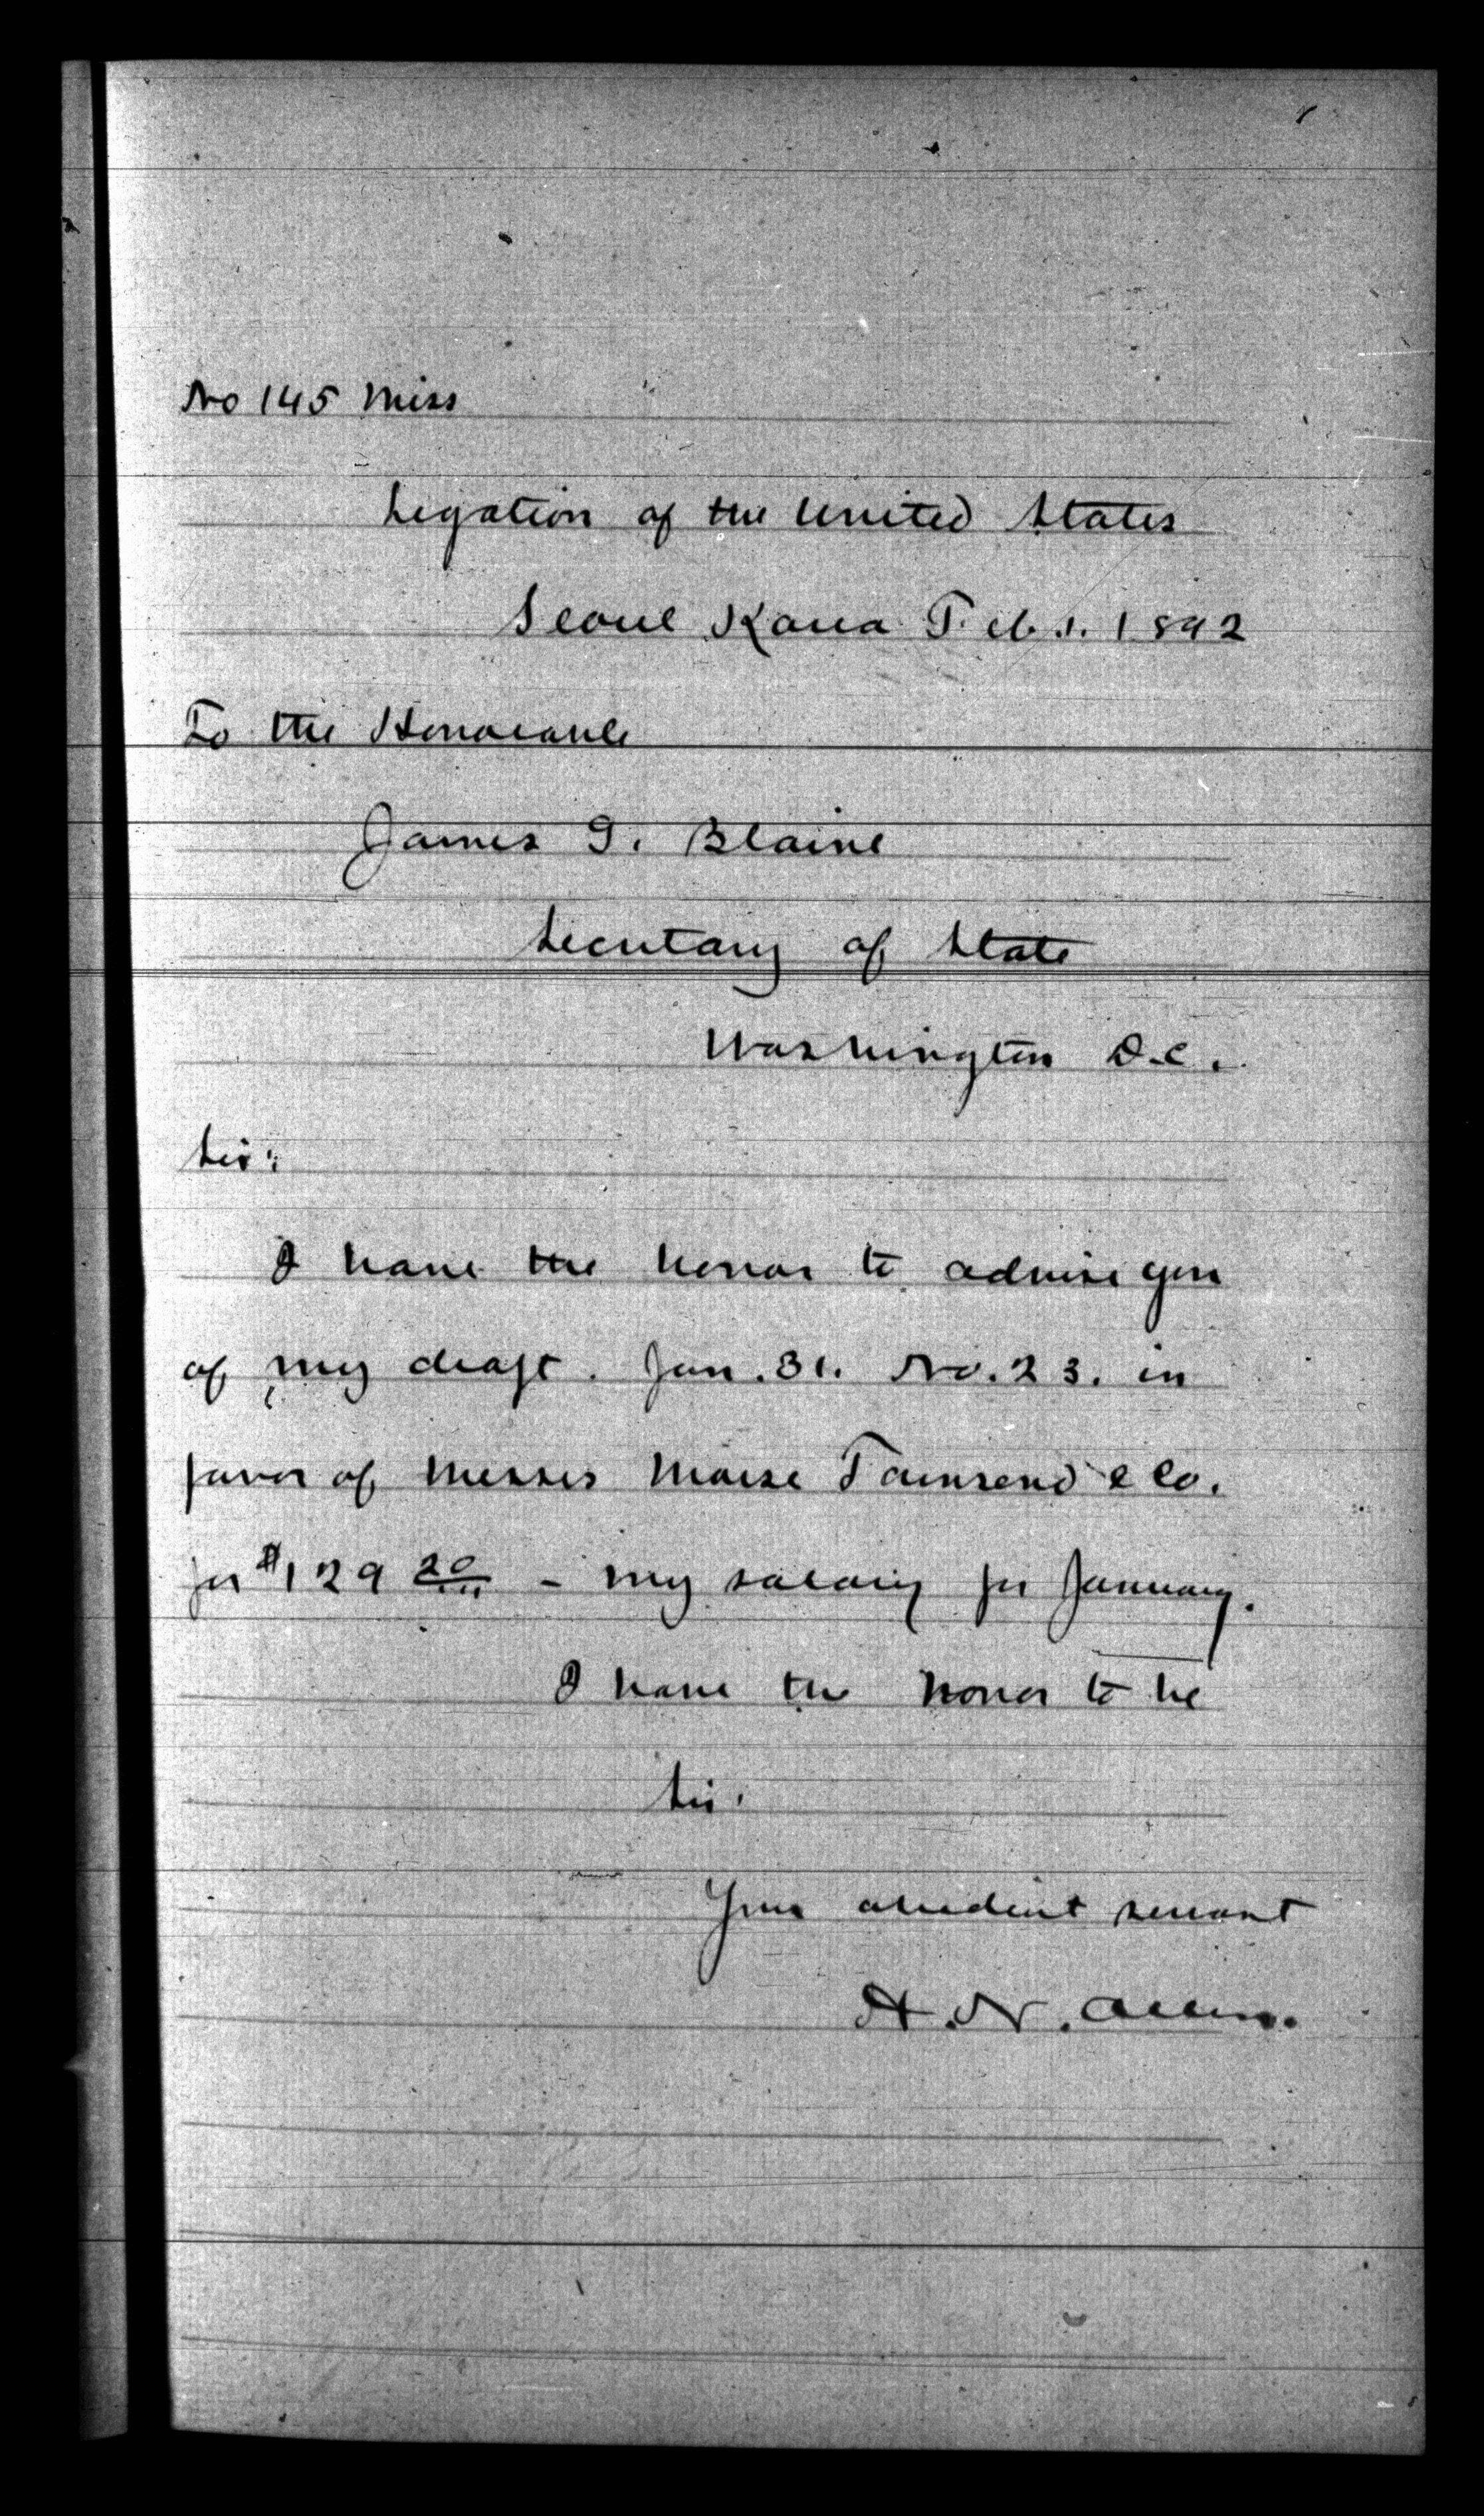 No 145 Miss
Legation of the United States
Seoul Korea Feb. 1. 1892
To the Honorable
James G. Blaine
Secretary of State
Washington D.C.
Sir:
I have the honor to advise you
of my draft. Jan. 31. No. 23. in
favor of Messrs Morse Townsend & Co.
for $129 20/100 - my salary for January.
I have the honor to be
Sir.
Your obedient servant
H. N. Allen.